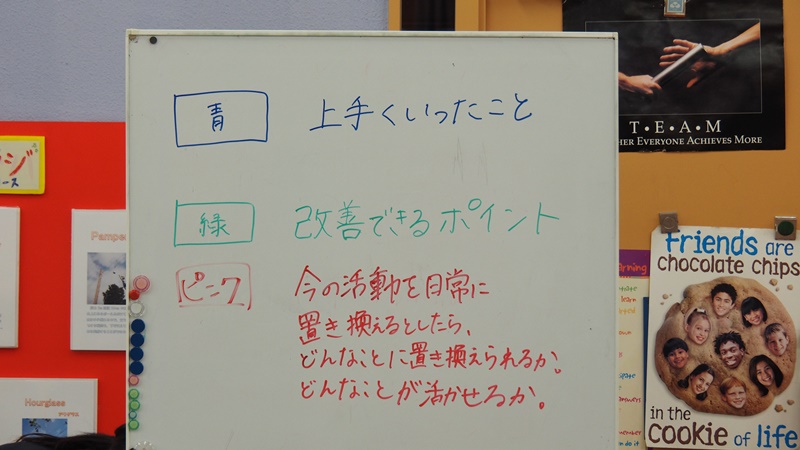 青 上手くいったこと
緑 改善できるポイント
ピンク 今の活動を日常に
置き換えるとしたら、
どんなことに置き換えられるか。
どんなことが活かせるか。
T•E•A•M
HER EVERYONE ACHIEVES MORE
Friends are
chocolate chips
in the
cookie of life
Hourglass